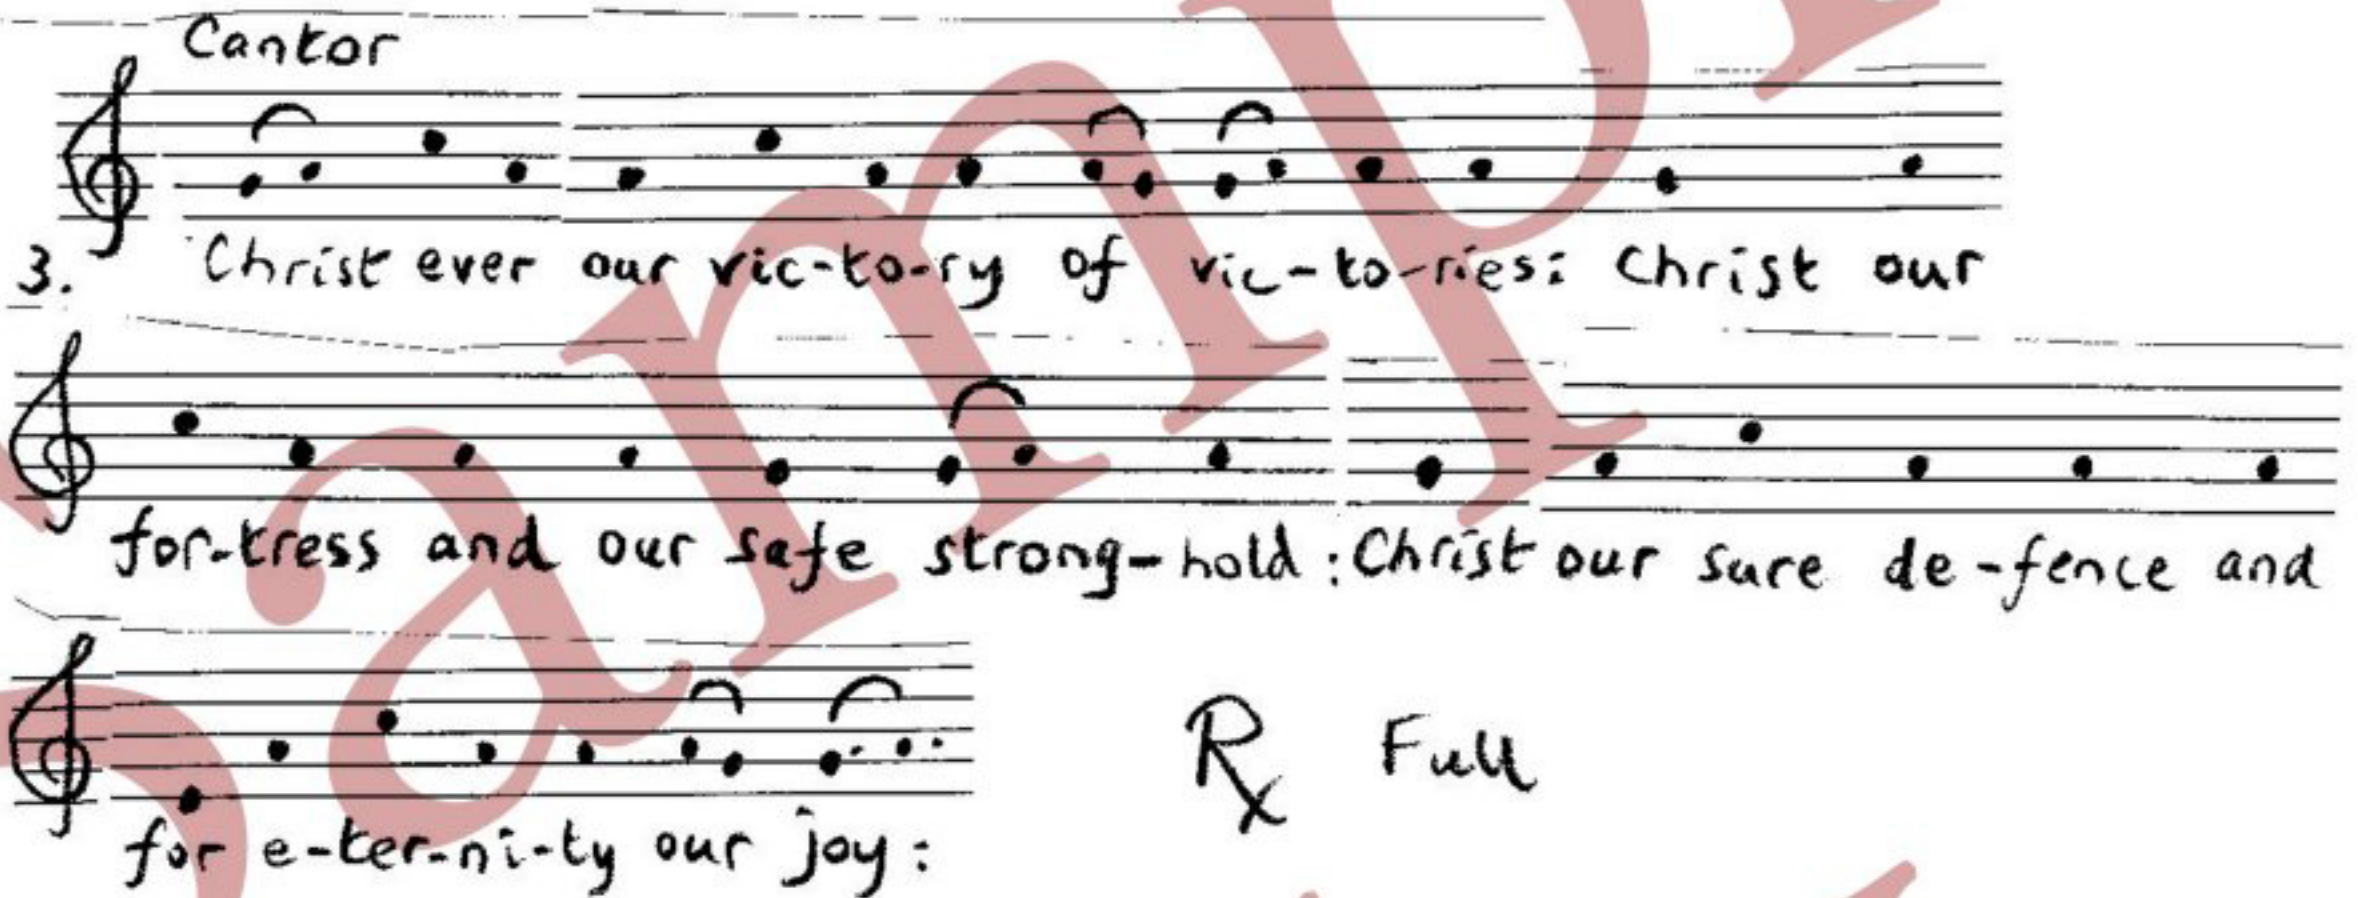 Cantor
3. Christ ever our vic-to-ry of vic-to-ries: Christ our
for-tress and our safe strong-hold: Christ our sure de-fence and
for e-ter-ni-ty our joy:
℞ Full